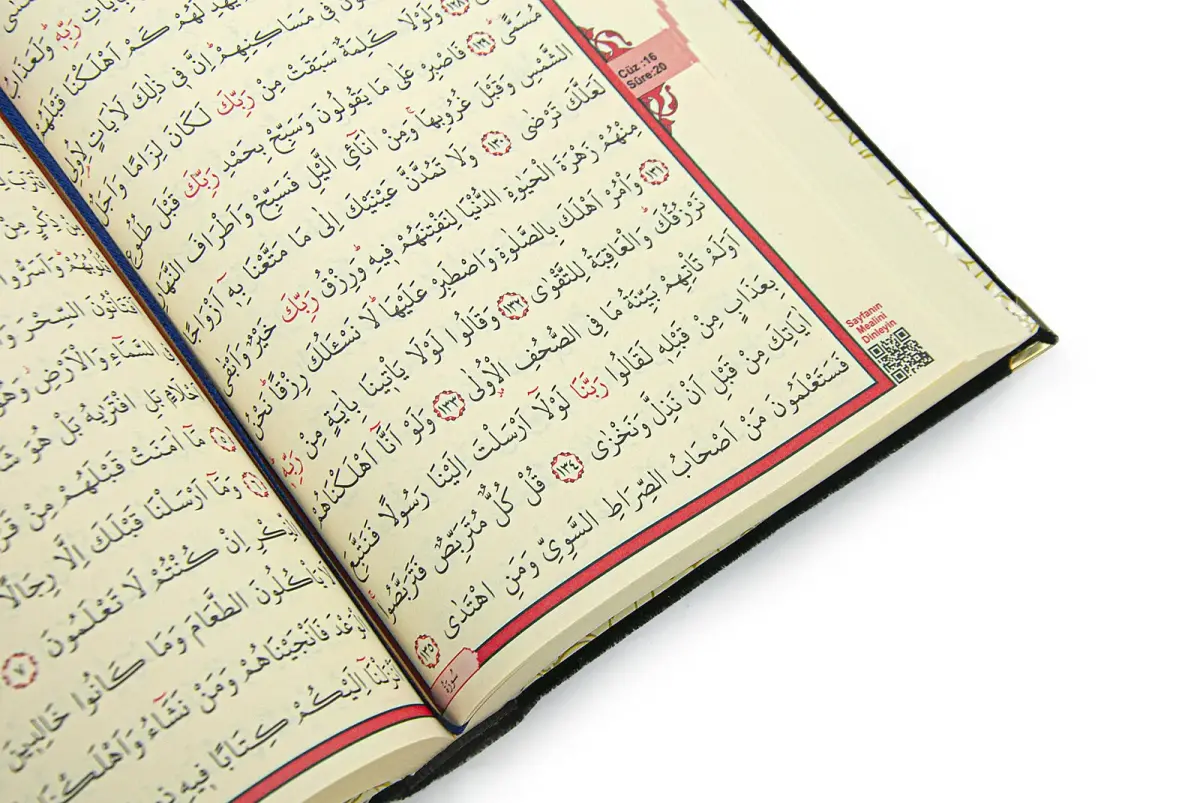 بِاٰيَاتِ رَبِّهٖۜ وَلَعَذَابُ
يَهْدِ لَهُمْ كَمْ اَهْلَكْنَا قَبْلَهُمْ
فٖي مَسَاكِنِهِمْۜ اِنَّ فٖي ذٰلِكَ لَاٰيَاتٍ لِاُولِي
١٢٨ وَلَوْلَا كَلِمَةٌ سَبَقَتْ مِنْ رَبِّكَ لَكَانَ لِزَامًا وَاَجَلٌ
مُسَمًّىۜ ١٢٩ فَاصْبِرْ عَلٰى مَا يَقُولُونَ وَسَبِّحْ بِحَمْدِ رَبِّكَ قَبْلَ طُلُوعِ
الشَّمْسِ وَقَبْلَ غُرُوبِهَاۚ وَمِنْ اٰنَٓائِ الَّيْلِ فَسَبِّحْ وَاَطْرَافَ النَّهَارِ
لَعَلَّكَ تَرْضٰى ١٣٠ وَلَا تَمُدَّنَّ عَيْنَيْكَ اِلٰى مَا مَتَّعْنَا بِهٖٓ اَزْوَاجًا
مِنْهُمْ زَهْرَةَ الْحَيٰوةِ الدُّنْيَا لِنَفْتِنَهُمْ فٖيهِۜ وَرِزْقُ رَبِّكَ خَيْرٌ وَاَبْقٰى
١٣١ وَأْمُرْ اَهْلَكَ بِالصَّلٰوةِ وَاصْطَبِرْ عَلَيْهَاۜ لَا نَسْـَٔلُكَ رِزْقًاۜ نَحْنُ
نَرْزُقُكَۜ وَالْعَاقِبَةُ لِلتَّقْوٰى ١٣٢ وَقَالُوا لَوْلَا يَأْتٖينَا بِاٰيَةٍ مِنْ رَبِّهٖۜ
اَوَلَمْ تَأْتِهِمْ بَيِّنَةُ مَا فِي الصُّحُفِ الْاُولٰى ١٣٣ وَلَوْ اَنَّٓا اَهْلَكْنَاهُمْ
بِعَذَابٍ مِنْ قَبْلِهٖ لَقَالُوا رَبَّنَا لَوْلَٓا اَرْسَلْتَ اِلَيْنَا رَسُولًا فَنَتَّبِعَ
اٰيَاتِكَ مِنْ قَبْلِ اَنْ نَذِلَّ وَنَخْزٰى ١٣٤ قُلْ كُلٌّ مُتَرَبِّصٌ فَتَرَبَّصُواۚ
فَسَتَعْلَمُونَ مَنْ اَصْحَابُ الصِّرَاطِ السَّوِيِّ وَمَنِ اهْتَدٰى ١٣٥
سُورَةُ
Cüz :16
Sûre:20
Sayfanın
Mealini
Dinleyin
مِنْ ذِكْرٍ مِنْ
قُلُوبُهُمْۜ وَاَسَرُّوا
اَفَتَأْتُونَ السِّحْرَ
السَّمَٓاءِ وَالْاَرْضِۘ وَهُوَ
اَحْلَامٍ بَلِ افْتَرٰيهُ بَلْ هُوَ
٥ مَٓا اٰمَنَتْ قَبْلَهُمْ مِنْ
٦ وَمَٓا اَرْسَلْنَا قَبْلَكَ اِلَّا رِجَالًا
الذِّكْرِ اِنْ كُنْتُمْ لَا تَعْلَمُونَ ٧
لَا يَأْكُلُونَ الطَّعَامَ وَمَا كَانُوا خَالِدٖينَ
الْوَعْدَ فَاَنْجَيْنَاهُمْ وَمَنْ نَشَٓاءُ وَاَهْلَكْنَا
اَنْزَلْنَٓا اِلَيْكُمْ كِتَابًا فٖيهِ